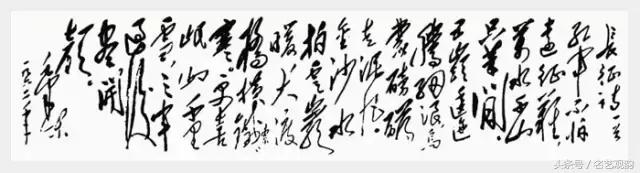 長征詩一首
紅軍不怕
遠征難
萬水千山
只等閒
五嶺逶迤
騰細浪烏
蒙磅礴
走泥丸
金沙水
拍雲崖
暖大渡
橋橫鐵索
寒更喜
岷山千里
雪三軍
過後
盡開
顏
毛澤東
一九六二年
头条号／名艺观韵